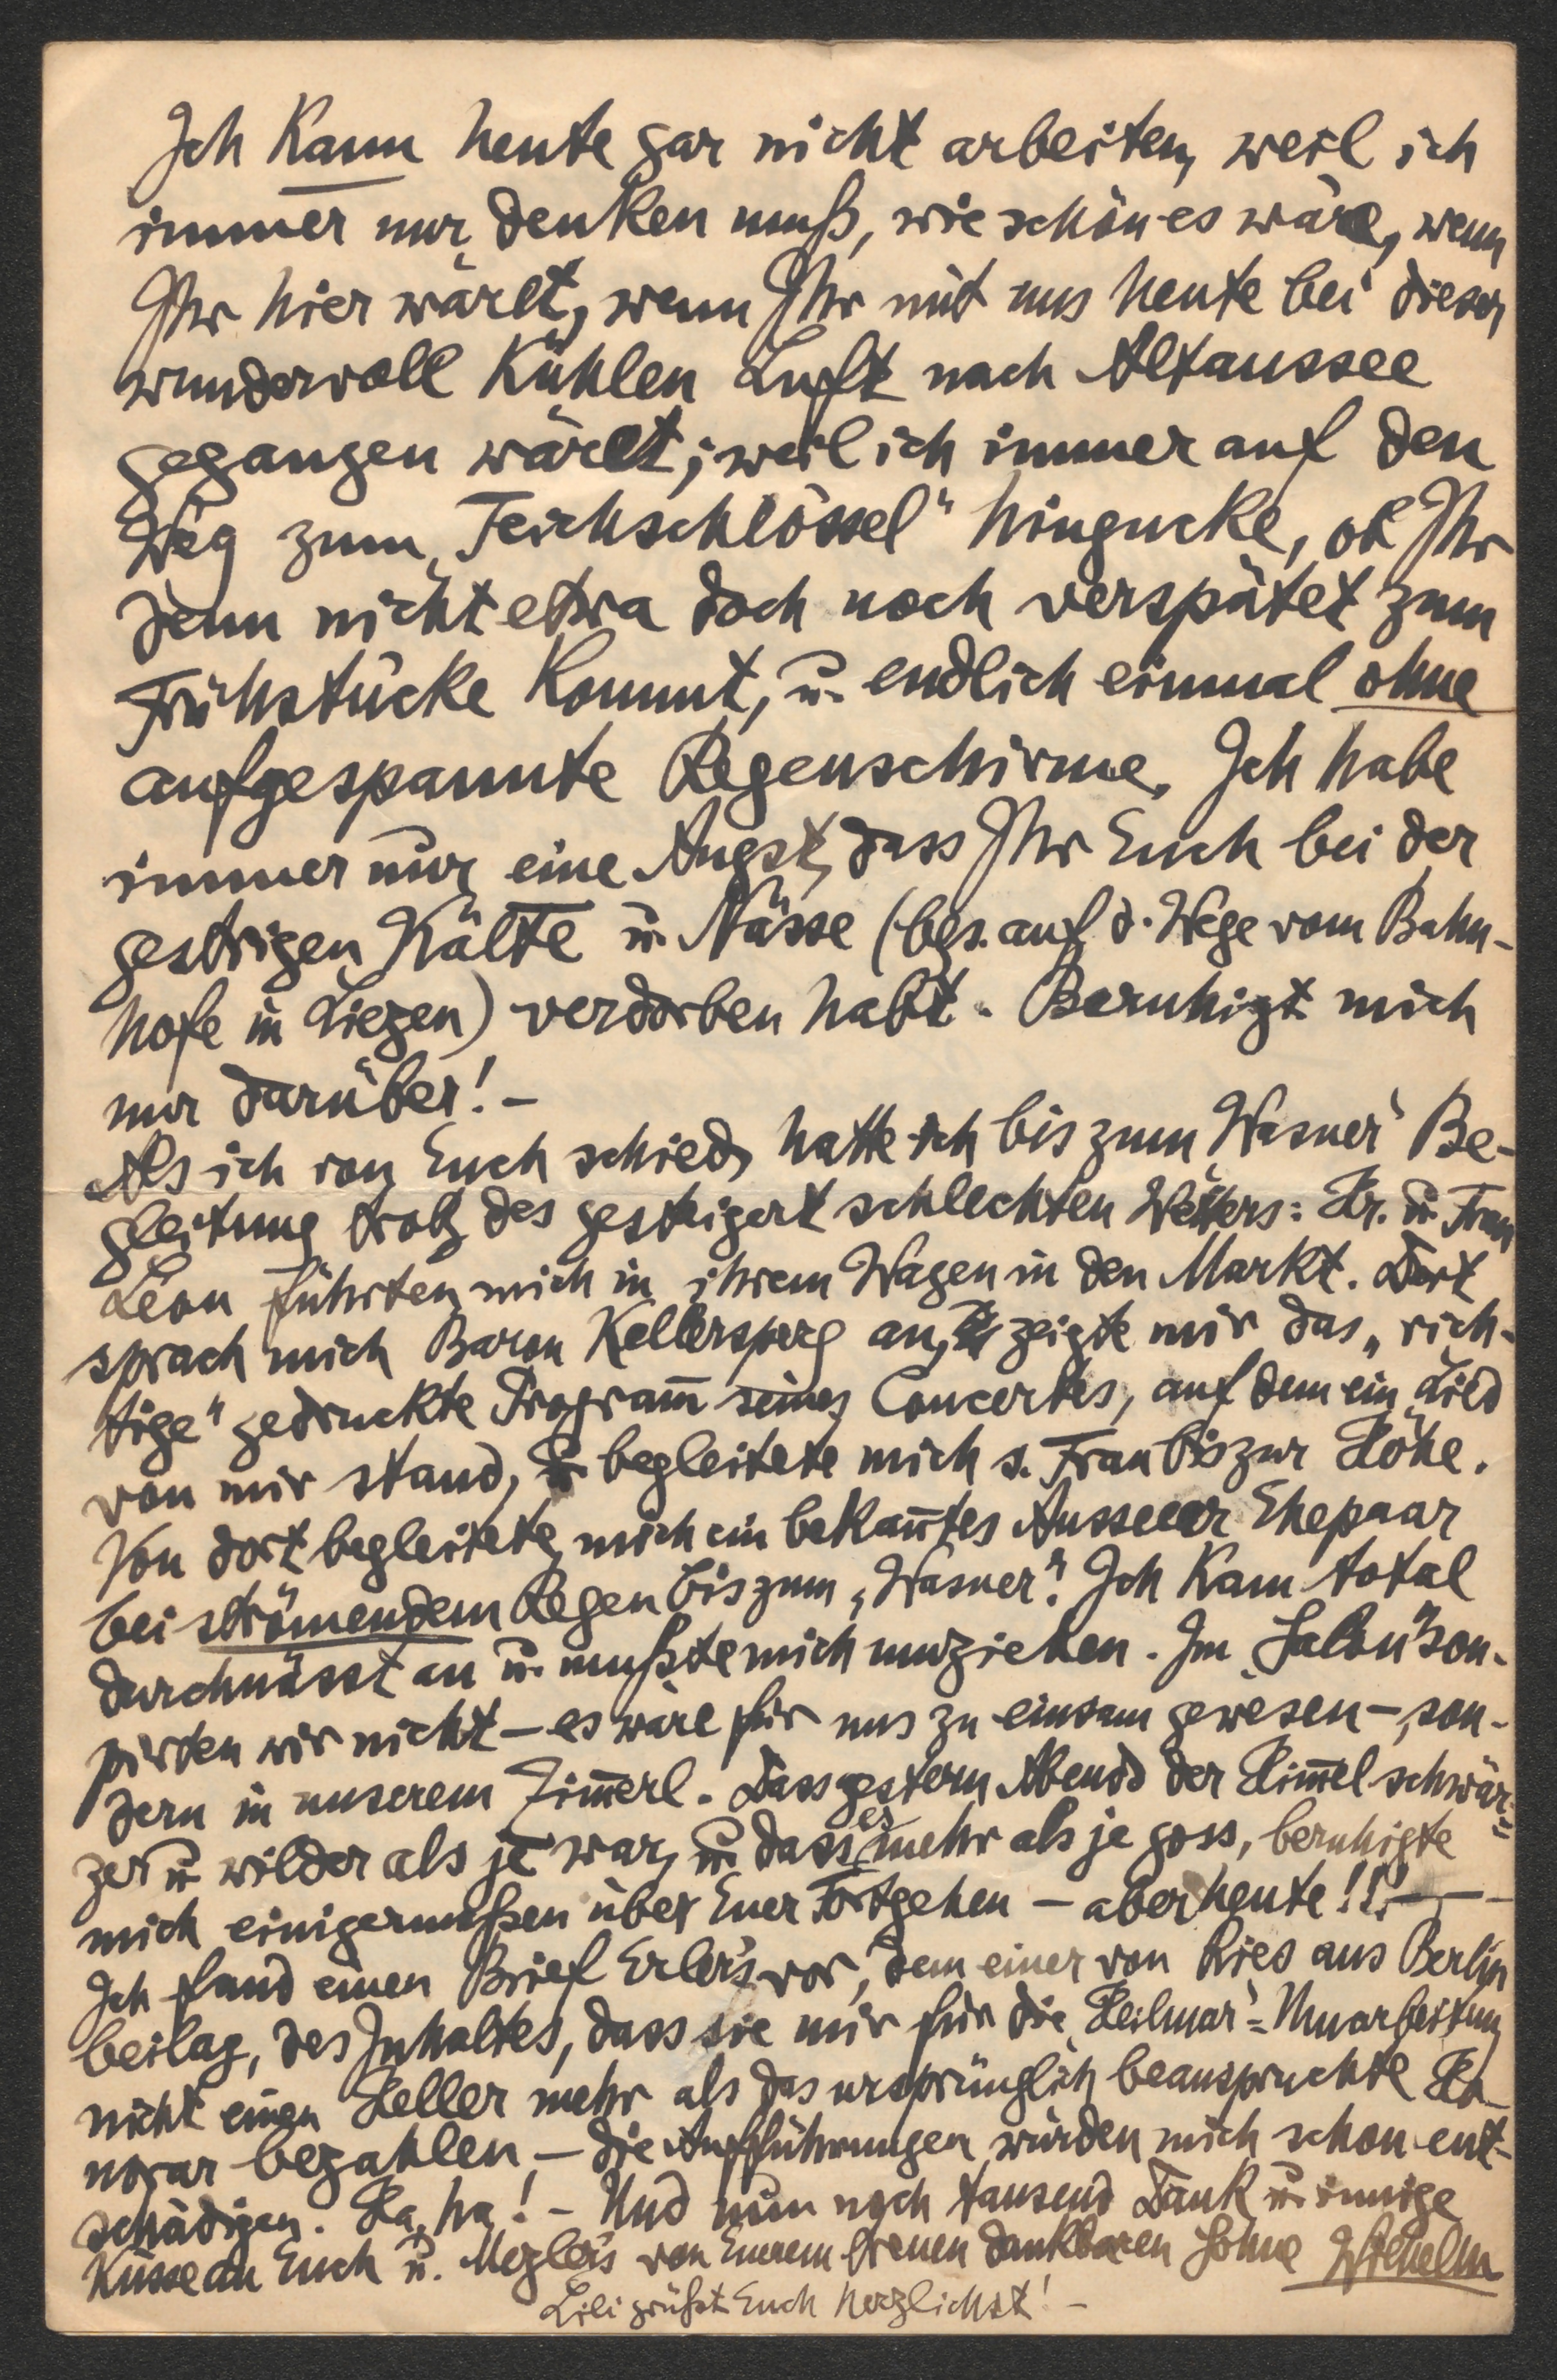 Ich kann heute gar nicht arbeiten, weil ich
immer nur denken muß, wie schön es wäre, wenn
Ihr hier wäret, wenn Ihr mit uns heute bei dieser
wundervoll kühlen Luft nach Altaussee
gegangen wäret; weil ich immer auf den
Weg zum „Teichschlössel" hingucke, ob Ihr
denn nicht etwa doch noch verspätet zum
Frühstücke kommt, u. endlich einmal ohne
aufgespannte Regenschirme. Ich habe
immer nur eine Angst, dass Ihr Euch bei der
gestrigen Kälte u. Nässe (bes. auf d. Wege vom Bahn-
hofe in Liezen) verdorben habt. Beruhigt mich
nur darüber! –
Als ich von Euch schied, hatte ich bis zum Wasner Be-
gleitung trotz des gesteigert schlechten Wetters: Hr. u. Frau
Léon führten mich in ihrem Wagen in den Markt. Dort
sprach mich Baron Kellersperg an, zeigte mir das „rich-
tige" gedruckte Programm̄ seines Concertes, auf dem ein Lied
von mir stand, u. begleitete mich s. Frau bis zur Höhe.
Von dort begleitete mich ein bekan̄tes Ausseer Ehepaar
bei strömendem Regen bis zum „Wasner". Ich kam total
durchnässt an u. mußte mich umziehen. Im „Salon" sou-
pirten wir nicht – es wäre für uns zu einsam gewesen –, son-
dern in unserem Zim̄erl. Dass gestern Abend der Him̄el schwär-
zer u. wilder als je war, u. dass es mehr als je goss, beruhigte
mich einigermaßen über Euer Fortgehen – aber heute!!! – –
Ich fand einen Brief Erler's vor, dem einer von Ries aus Berlin
beilag, des Inhaltes, dass sie mir für die „Heilmar"-Umarbeitung
nicht einen Heller mehr als das ursprünglich beanspruchte Ho-
norar bezahlen – die Aufführungen würden mich schon ent-
schädigen. Ha, ha! – Und nun noch tausend Dank u. innige
Küsse an Euch u. Meglers von Eurem treuen dankbaren Sohne Wilhelm
Lili grüßt Euch herzlichst! –